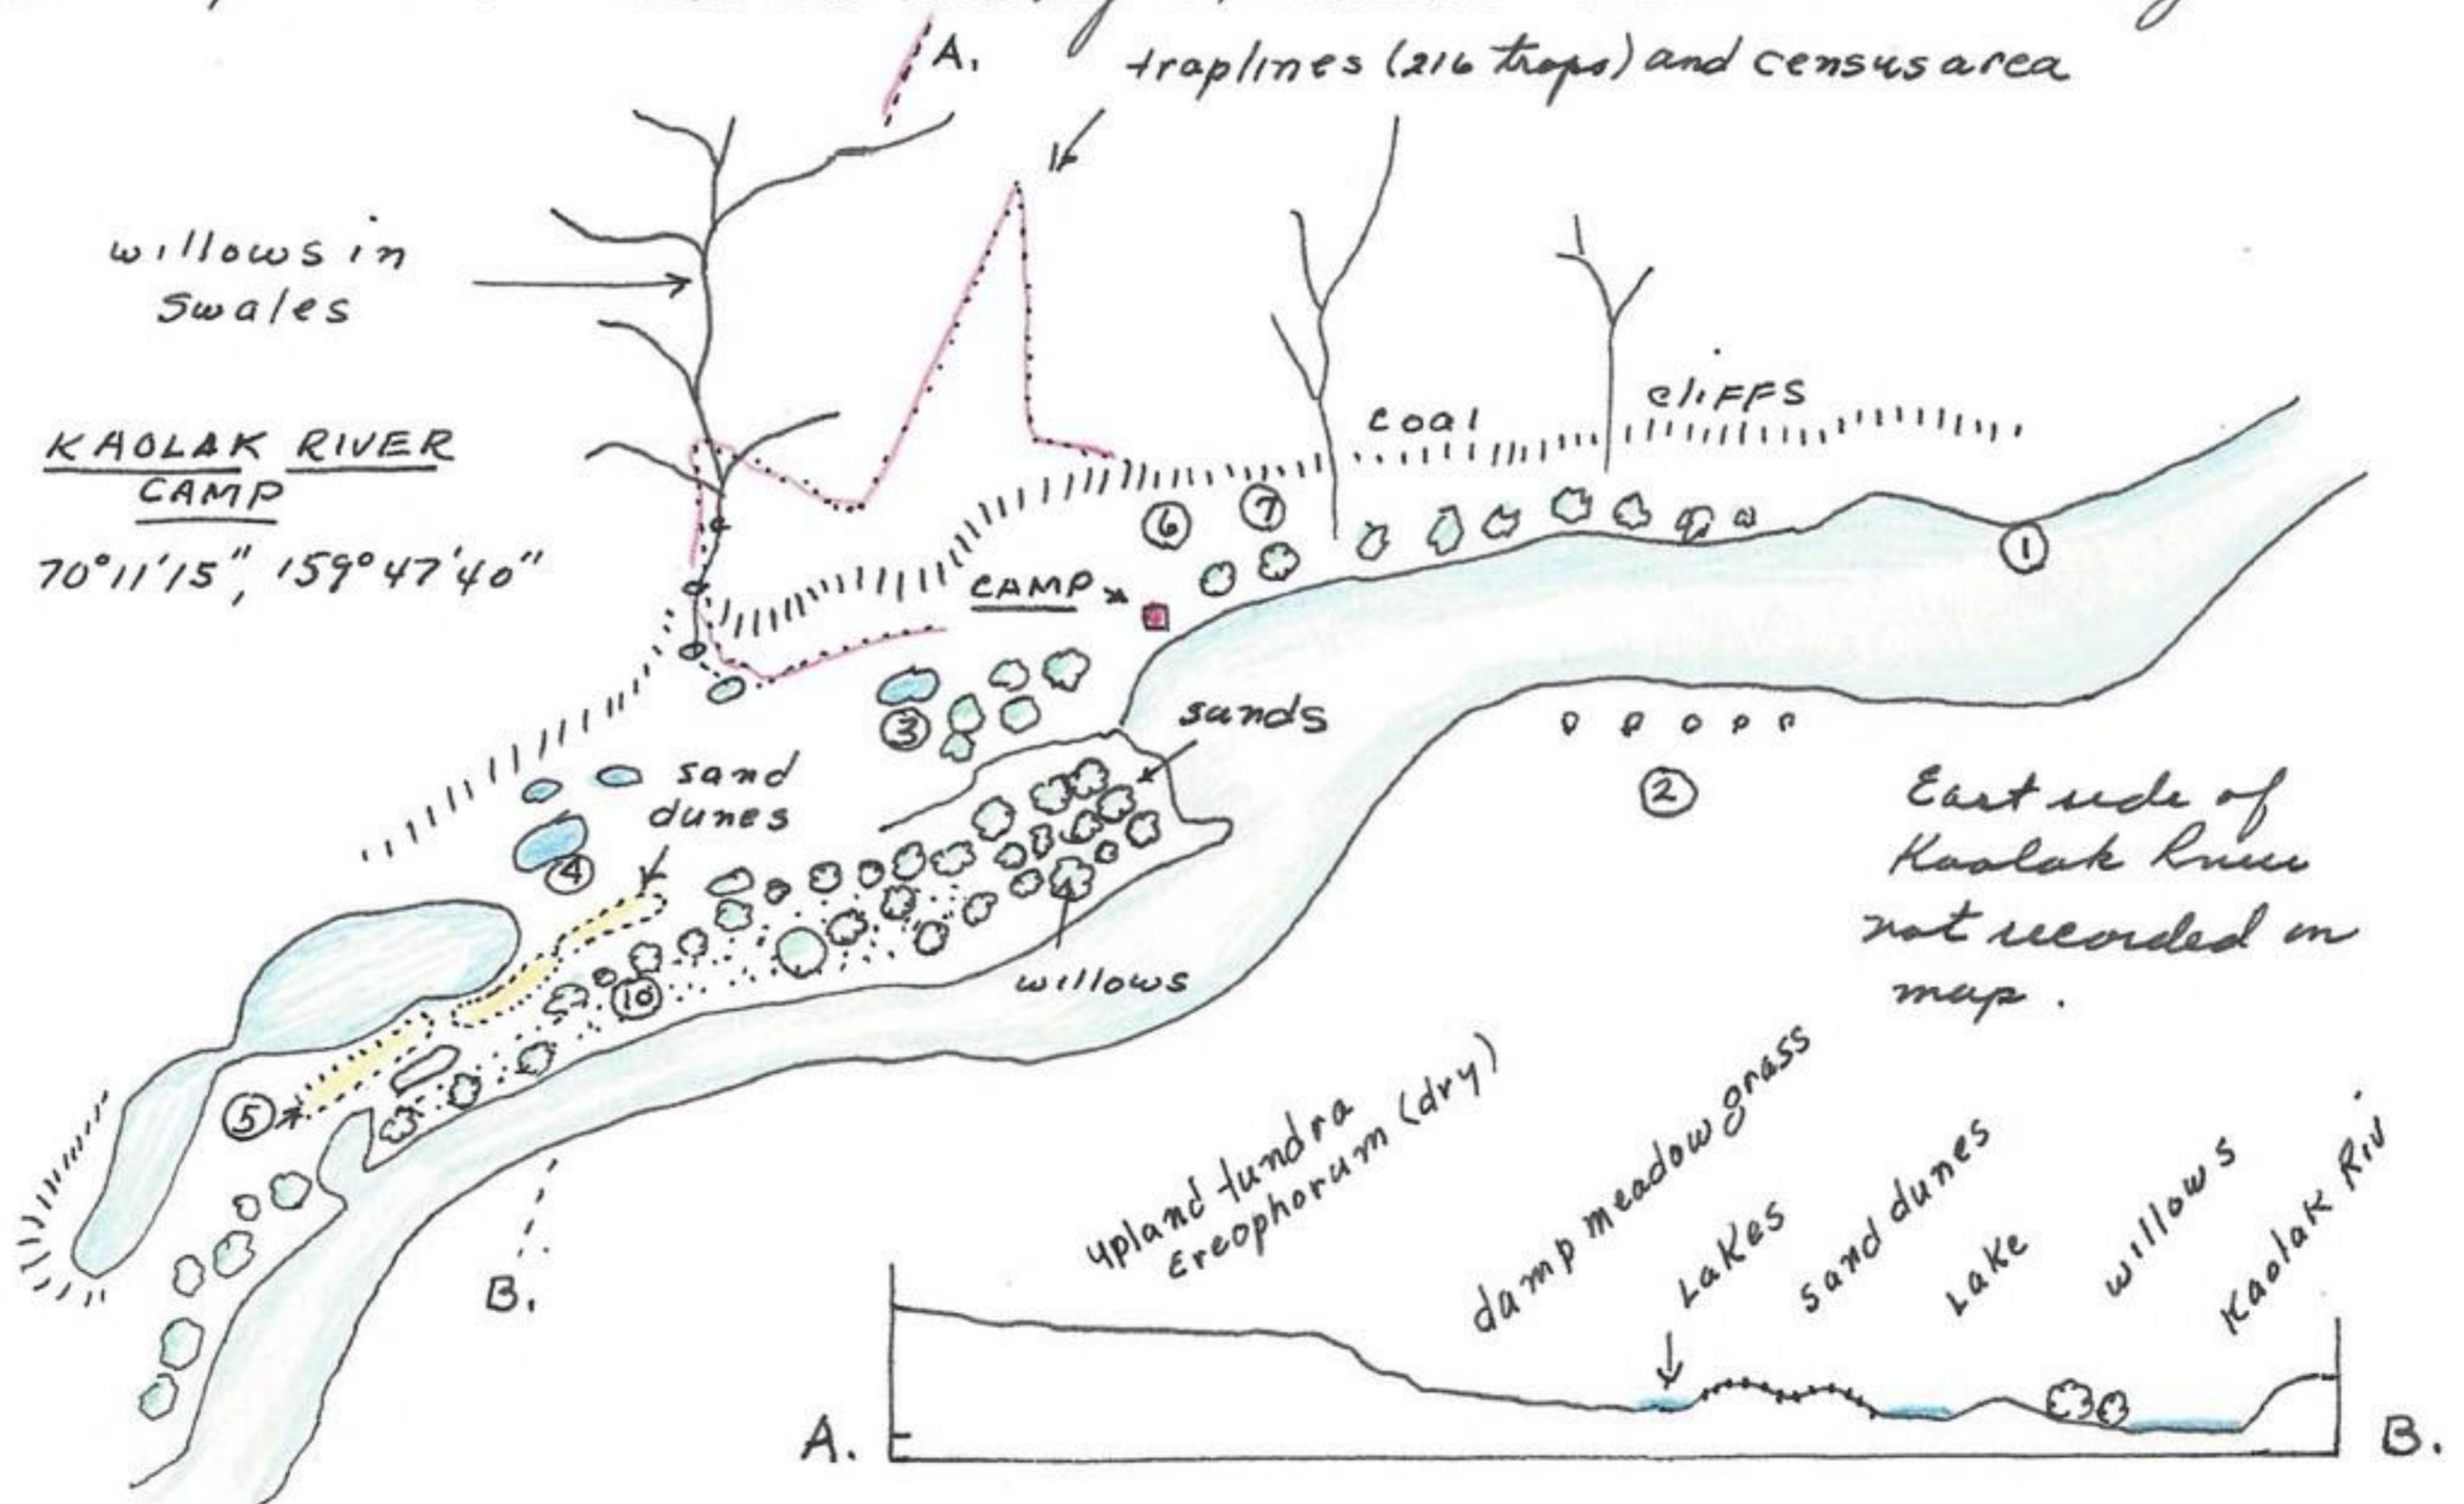 A.
traplines (216 traps) and census area
willows in
swales
KAOLAK RIVER
CAMP
70°11'15", 159°47'40"
coal
cliFFS
6
7
1
CAMP
3
sands
sand
dunes
2
4
East side of
Kaolak River
not recorded on
map.
10
willows
5
B.
upland tundra
Ereophorum (dry)
damp meadow grass
LaKes
sand dunes
LaKe
willows
Kaolak Riv
A.
B.